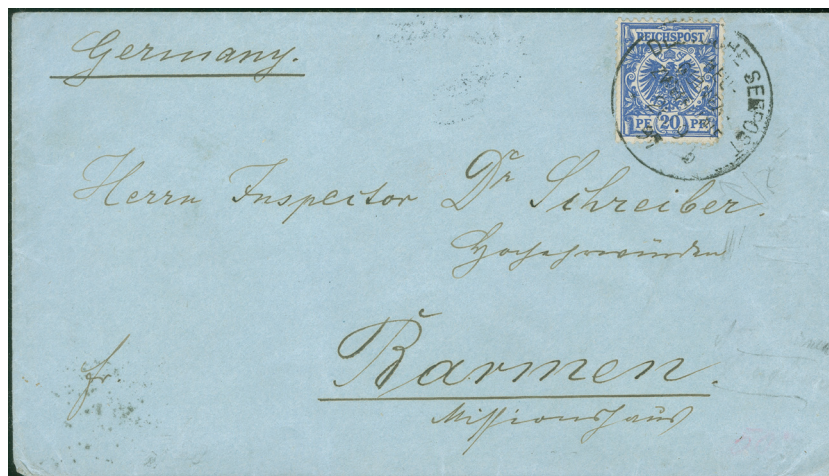 Germany.
REICHSPOST
PF 20 PF
DEUTSCHE SEEPOST
Herrn Inspector Dr Schreiber.
Hochehrwürden
fr.
Barmen.
Missionshaus